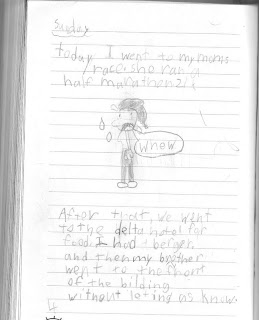 Sunday
today I went to my moms
race. she ran a
half marathon 21!
whew
After that, we went
to the delta hotel for
food. I had a berger.
and then my brother
went to the front
of the bilding
without leting us know.